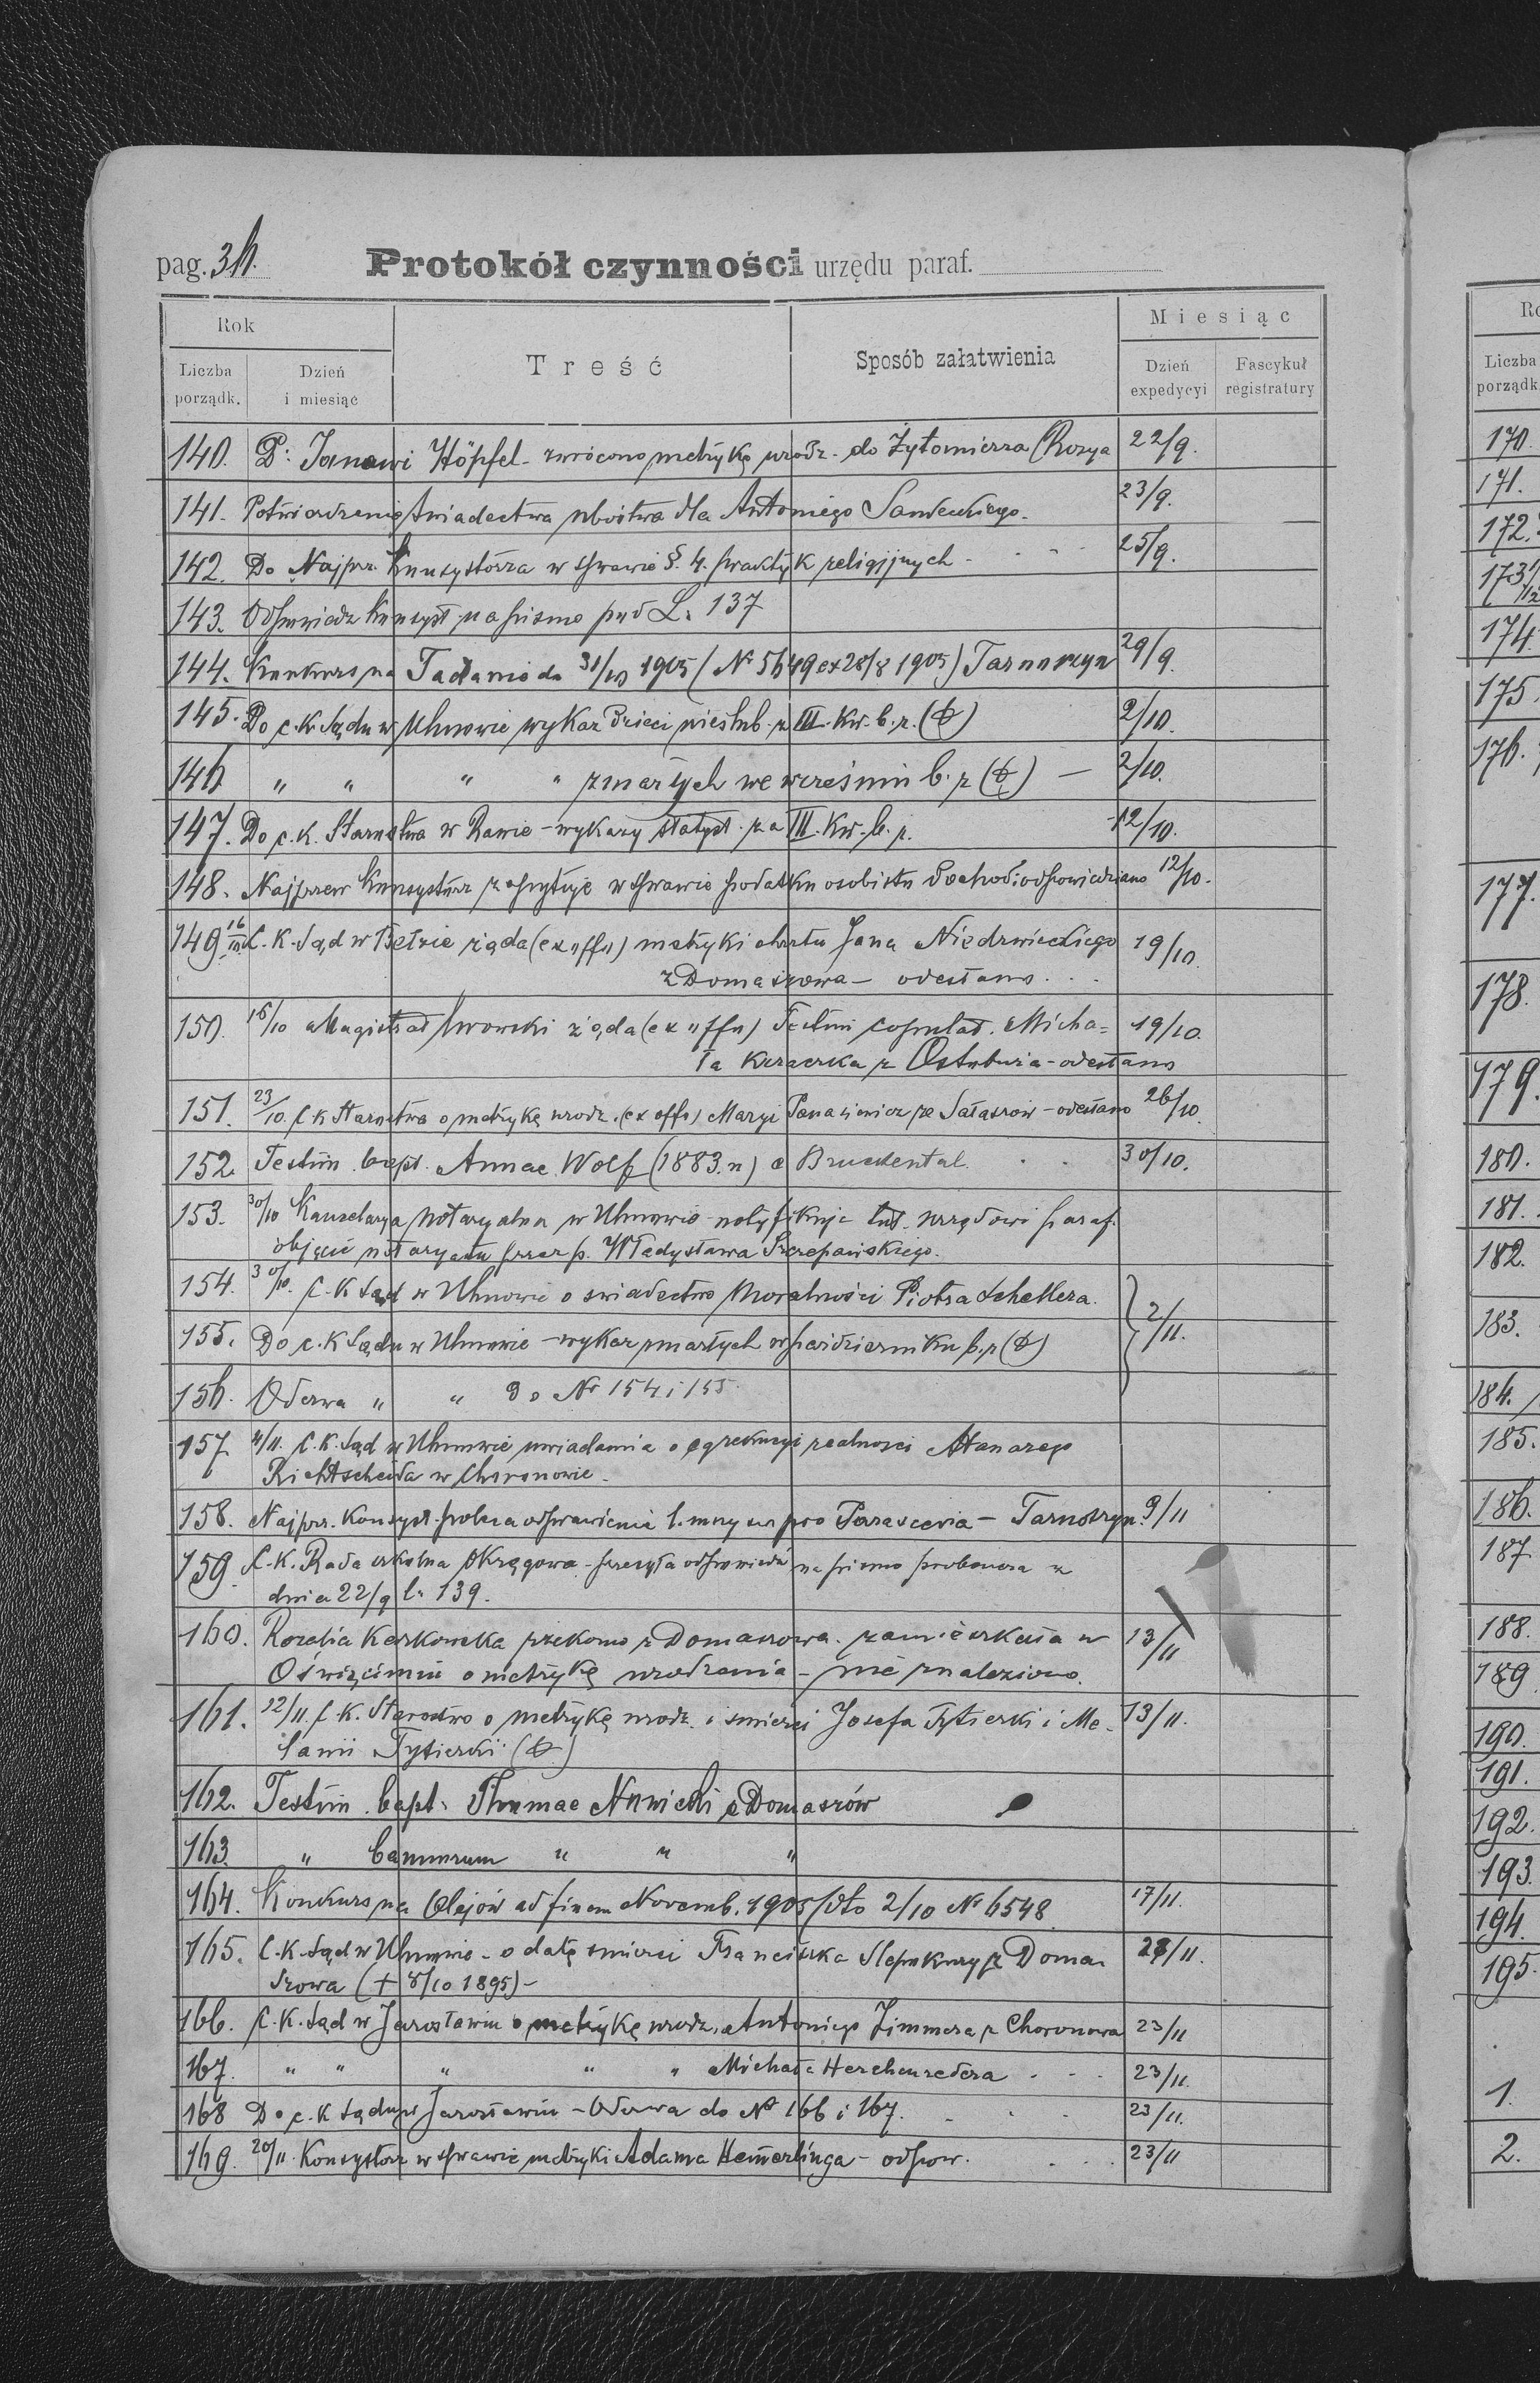 pag. 36. Protokół czynności urzędu paraf.
Rok
Treść
Sposób załatwienia
Miesiąc
Liczba porządk.
Dzień i miesiąc
Dzień expedycyi
Fascykuł registratury
140. P. Janowi Höpfel - zwrócono metrykę urodz. do Żytomierza (Rosya 22/9.
141. Potwierdzenie świadectwa ubóstwa dla Antoniego 23/9.
142. Do Najprz. Konsystorza w sprawie §. 4. praktyk religijnych - 25/9.
143. Odpowiedź Konsyst. na pismo pod L. 137
144. Konkurs na do 31/10 1905 (No 5649 ex 28/8 1905) Tarnoszyn 29/9.
145. Do c.k. Sądu w Uhnowie wykaz dzieci nieślub. z III. Kw. b. r. 2/10.
146 " " " " zmarłych we wrześniu b. r 2/10.
147. Do c. k. Starostwa w Rawie - wykazy statyst. za III. Kw. b. r. 12/10.
148. Najprzew Konsystorz zapytuje w sprawie podatku osobisto dochod. odpowiedziano 12/10.
149 16/10 C. K. Sąd w Bełzie żąda (ex offo) metryki chrztu Jana Niedzwieckiego 19/10.
z Domaszowa - odesłano . . .
150. 16/10 Magistrat lwowski żąda (ex offo) Testim copulat. Micha= 19/10.
ła z Ostobuża - odesłano
151. 23/10. C k Starostwo o metrykę urodz. (ex offo) Maryi ze Sałaszów - odesłano 26/10.
152. Testim. bapt. Annae Wolf (1883. n) e Bruckental. . . 30/10.
153. 30/10 Kancelarya notaryalna w Uhnowie notyfikuje tut. urzędowi paraf.
objęcie notaryatu przez p. Władysława Szczepańskiego.
154. 30/10. C. K Sąd w Uhnowie o swiadectwo moralności Piotra Schellera.
155. Do c. K Sądu w Uhnowie - wykaz zmarłych w październiku b. r 2/11.
156. Odezwa " " do No 154 i 155.
157 4/11. C. K. Sąd w Uhnowie uwiadamia o realności Atanazego
w Choronowie.
158. Najprz. Konsyst. poleca odprawienie 1. mszy św pro Parascevia - Tarnoszyn. 9/11
159. C. K. Rada szkolna Okręgowa - przesyła odpowiedź na pismo proboszcza z
dnia 22/9 l. 139.
160. Rozalia z Domaszowa. zamieszkała w 13/11
Oświęcimiu o metrykę urodzenia - nie znaleziono.
161. 12/11. C. K. Starostwo o metrykę urodz. i smierci Josefa Tytierki i Me- 13/11.
lanii Tytierki
162. Testim. bapt. Thomae Nowicki e Domaszów
163. " bannorum " " "
164. Konkurs na Olejów ad finem Novemb. 1905 / dto 2/10 No 6548. 17/11.
165. C. K. Sąd w Uhnowie - o datę smierci Franciszka z Doma- 23/11.
szowa († 8/10 1895) -
166. C. K. Sąd w Jarosławiu o metrykę urodz. Antoniego Zimmera z Choronowa 23/11
167. " " " " " Michała Herchenredera . . . 23/11.
168 Do c. K Sądu w Jarosławiu - Odezwa do No 166 i 167. - . . 23/11.
169. 20/11. Konsystorz w sprawie metryki Adama Hemerlinga - odpow. . . . 23/11
Liczba
porządk
170.
171.
172.
173
174.
175.
176.
177.
178.
179.
180.
181.
182.
183.
184.
185.
186.
187
188.
189.
190.
191.
192.
193.
194.
195.
1.
2.